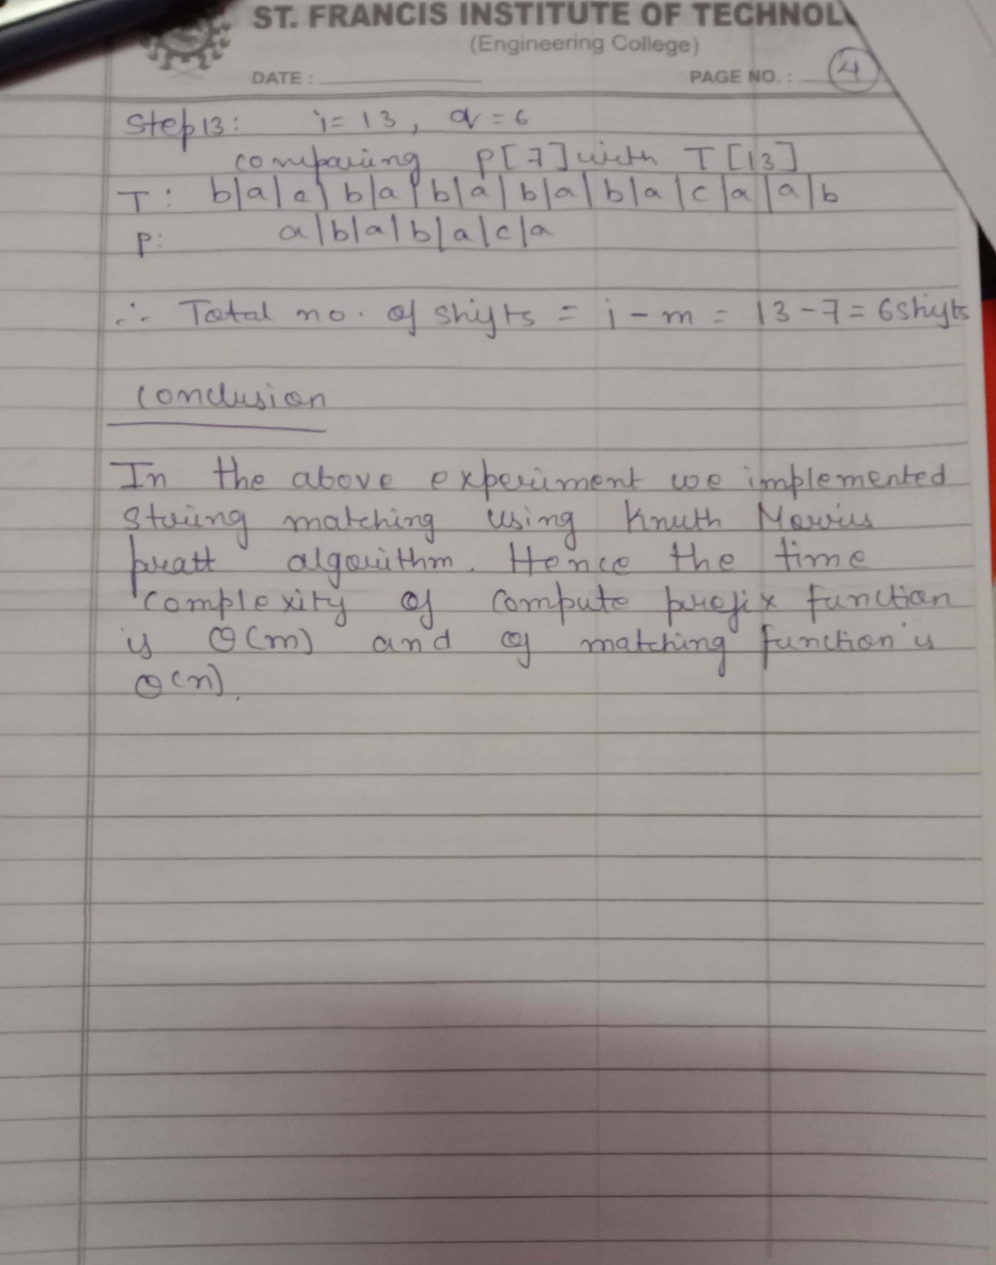 ST. FRANCIS INSTITUTE OF TECHNOL
(Engineering College)
DATE : PAGE NO. : 4
Step 13: i = 13, q = 6
comparing P[7] with T[13]
T: b|a|c|b|a|b|a|b|a|b|a|c|a|a|b
P: a|b|a|b|a|c|a
∴ Total no. of shifts = i - m = 13 - 7 = 6 shifts
Conclusion
In the above experiment we implemented
string matching using Knuth Morris
pratt algorithm. Hence the time
complexity of compute prefix function
is O(m) and of matching function is
O(n).